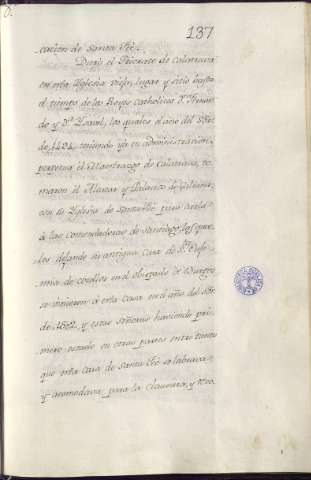 137
cacion de Santa Fé.
Duró el Priorato de Calatrava
en esta Yglesia vieja, lugar y sitio hasta
el tiempo de los Reyes Catholicos Dn. Fernan-
do y Dª. Ysavel, los quales el año del Señor
de 1494, teniendo ya en administracion
perpetua el Maestrazgo de Calatrava, to-
maron el Alcazar y Palacio de Galiana,
con su Yglesia de Santa Fé para
á las comendadoras de Santiago, las qua-
les dejando su antigua casa de Sta. Eufe-
mia de Cozollos en el obispado de Burgos
se vinieron á esta Casa en el año del Sor.
de 1502, y estas señoras haviendo pri-
mero estado en otras partes entre tanto
que esta casa de Santa Fé se labrava
y acomodava para la clausura, y reco-